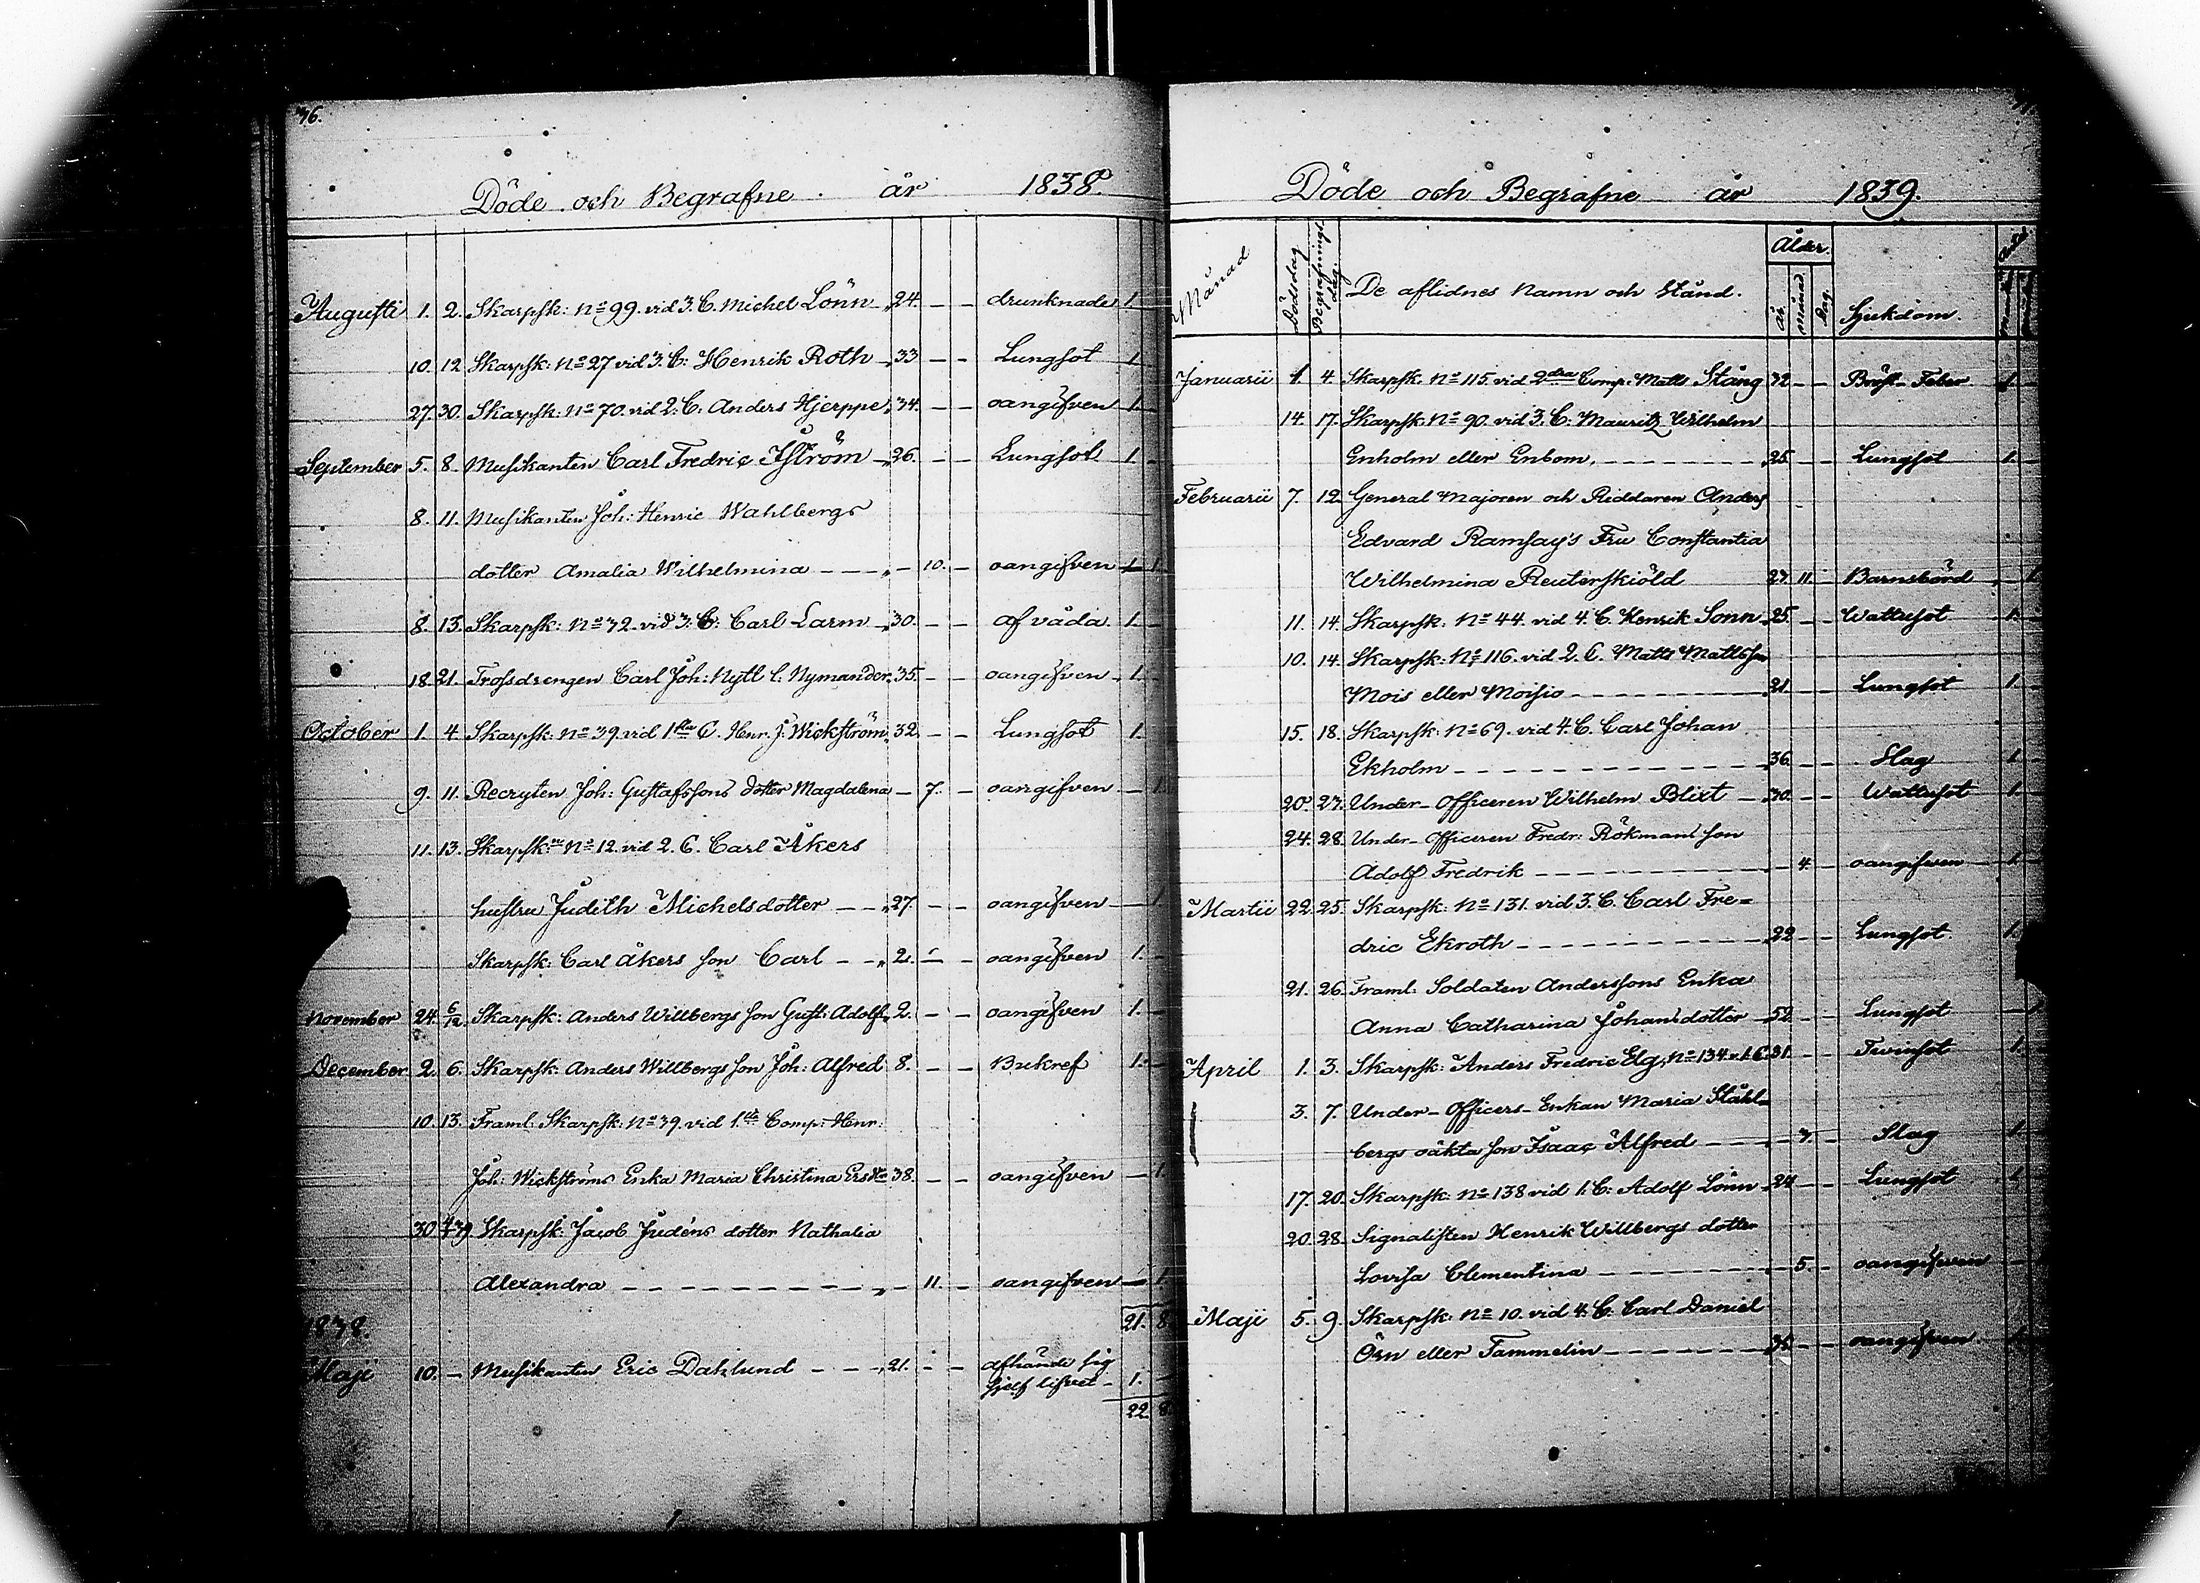 76.
Döde och Begrafne år 1838.
Augusti 1. 2. Skarpsk: No 99. vid 3. C. Michel Lönn 24. - - drunknade 1.
10. 12. Skarpsk: No 27 vid 3. C: Henrik Roth 33 - - Lungsot 1
27. 30. Skarpsk: No 70. vid 2. C. Anders Hjerppe 34. - - oangifven 1.
September 5. 8. Musikanten Carl Fredric Iström 26. - - Lungsot 1.
8. 11. Musikanten Joh: Henric Wahlbergs
dotter Amalia Wilhelmina - - - 10. - oangifven - 1
8. 13. Skarpsk: No 32. vid 3. C: Carl Larm 30. - - af våda 1.
18. 21. Trossdrengen Carl Joh: Nytl l. Nymander 35. - - oangifven 1.
October 1. 4. Skarpsk: No 39. vid 1sta C. Henr. J. Wickström 32. - - Lungsot 1.
9. 11. Recryten Joh: Gustafssons dotter Magdalena - 7. - oangifven - 1.
11. 13. Skarpsk: No 12. vid 2. C. Carl Åkers
hustru Judith Michelsdotter - - 27. - - oangifven - 1.
Skarpsk: Carl Åkers son Carl - - 2. - - oangifven 1. -
November 24. 6/12 Skarpsk: Anders Willbergs son Gust: Adolf 2. - - oangifven 1.
December 2. 6. Skarpsk: Anders Willbergs son Joh: Alfred 8. - - Bukref 1. -
10. 13. Framl. Skarpsk: No 39. vid 1sta Comp: Henr:
Joh: Wickströms Enka Maria Christina Ersdtr 38. - - oangifven - 1.
30 4/1 39. Skarpsk: Jacob Judéns dotter Nathalia
Alexandra - - - - - - - 11. - oangifven - 1.
1838. 21. 8.
Maji 10. - Musikanten Eric Dahlund - - - 21. - - afhände sig
sjelf lifvet - 1. -
22. 8.
Döde och Begrafne år 1839.
Månad Dödsdag Begrafnings dag. De aflidnes Namn och Stånd. Ålder. år månad dag. Sjukdom.
Januarii 1. 4. Skarpsk. No 115 vid 2dra Comp: Matts Stång 32 - - Bröst-Feber 1.
14. 17. Skarpsk: No 90. vid 3. C: Mauritz Wilhelm
Enholm eller Enbom. - - - - - - - 25. - - Lungsot 1.
Februarii 7. 12. General Majoren och Riddaren Anders
Edvard Ramsay's Fru Constantia
Wilhelmina Reuterskiöld 27. 11. - Barnsbörd - 1.
11. 14. Skarpsk: No 44. vid 4. C. Henrik Sonn 25. - - Wattusot 1.
10. 14. Skarpsk: No 116. vid 2. C. Matts Mattsson
Mois eller Moisio - - - - - - - 21. - - Lungsot 1.
15. 18. Skarpsk: No 69. vid 4. C. Carl Johan
Ekholm - - - - - - - - - - - 36. - - Slag 1.
20. 27. Under-Officeren Wilhelm Blixt - 30. - - Wattusot 1.
24. 28. Under-Officeren Fredr: Rökmans son
Adolf Fredrik - - - - - - - - - 4. - oangifven 1.
Martii 22. 25. Skarpsk: No 131. vid 3. C. Carl Fre=
dric Ekroth - - - - - - - - - 22 - - Lungsot. 1.
21. 26. Framl: Soldaten Anderssons Enka
Anna Catharina Johansdotter - 52. - - Lungsot - 1
April 1. 3. Skarpsk: Anders Fredric Elg, No 134 v. 1. C. 31. - - Tvinsot 1.
3. 7. Under-Officers-Enkan Maria Ståhl=
bergs oäkta son Isaac Alfred - - - 7. - Slag 1.
17. 20. Skarpsk: No 138 vid 1. C: Adolf Lönn 24. - - Lungsot 1.
20. 28. Signalisten Henrik Willbergs dotter
Lovisa Clementina - - - - - - 5. - oangifven -
Maji 5. 9. Skarpsk: No 10. vid 4. C: Carl Daniel
Örn eller Tammelin - - - - - - 35. - - oangifven. 1.